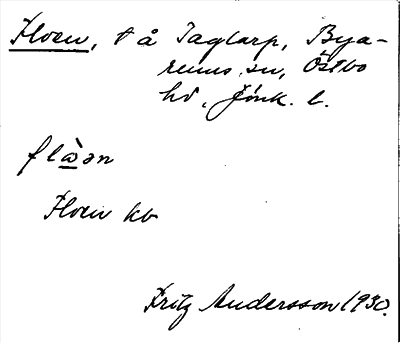 Floen, t å Taglarp, Bya-
rums sn, Östbo
hd, Jönk. l.
flo̱àən
Floen kb
Fritz Andersson 1930.